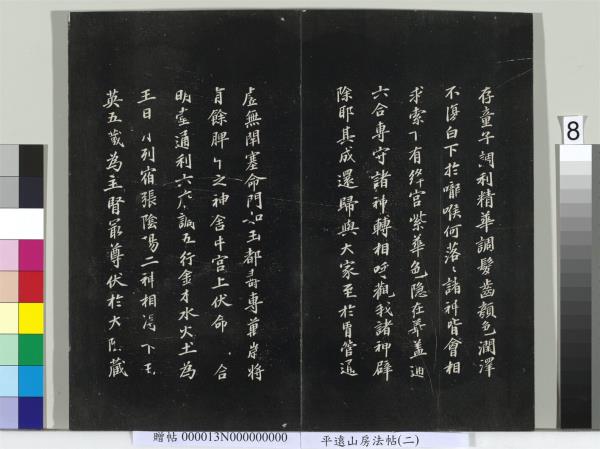 存童子調利精華調髮齒顏色潤澤
不復白下於嚨喉何落〻諸神皆會相
求索下有絳宮紫華色隱在華蓋通
六合專守諸神轉相呼觀我諸神辟
除耶其成還歸與大家至於胃管通
虛無閉塞命門如玉都壽專萬歲將
有餘脾中之神舍中宮上伏命 合
明堂通利六府調五行金木水火土為
王日月列宿張陰陽二神相得下玉
英五藏為主腎最尊伏於大陰藏
8
贈帖 000013N000000000 平遠山房法帖(二)